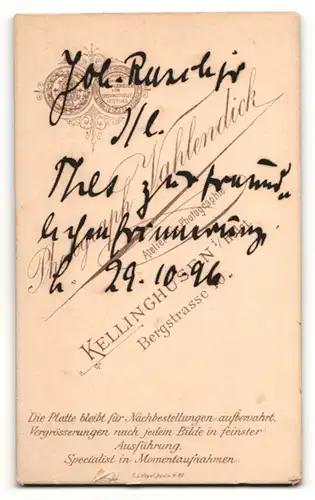 Joh. Ruschjr
s/l.
Thes zur freund-
lichen Erinnerung
29.10.96.
Photograph Vahlendick
Atelier Photographie
KELLINGHUSEN i/Holst.
Bergstrasse 10.
Die Platte bleibt für Nachbestellungen aufbewahrt.
Vergrösserungen nach jedem Bilde in feinster
Ausführung.
Specialist in Momentaufnahmen.